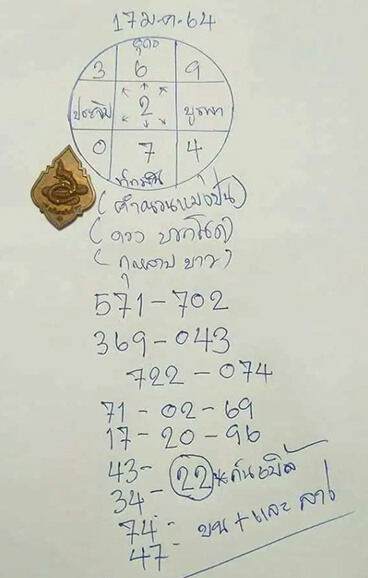 17 ม.ค. 64
อุดร
3 6 9
ประจิม 2 บูรพา
0 7 4
ทักษิณ
(คำนวนแม่งป่น)
(ดวง
(กุหลาบขาว)
571-702
369-043
722-074
71-02-69
17-20-96
43-
22
34-
74-
บน + และ ล่าง
47-